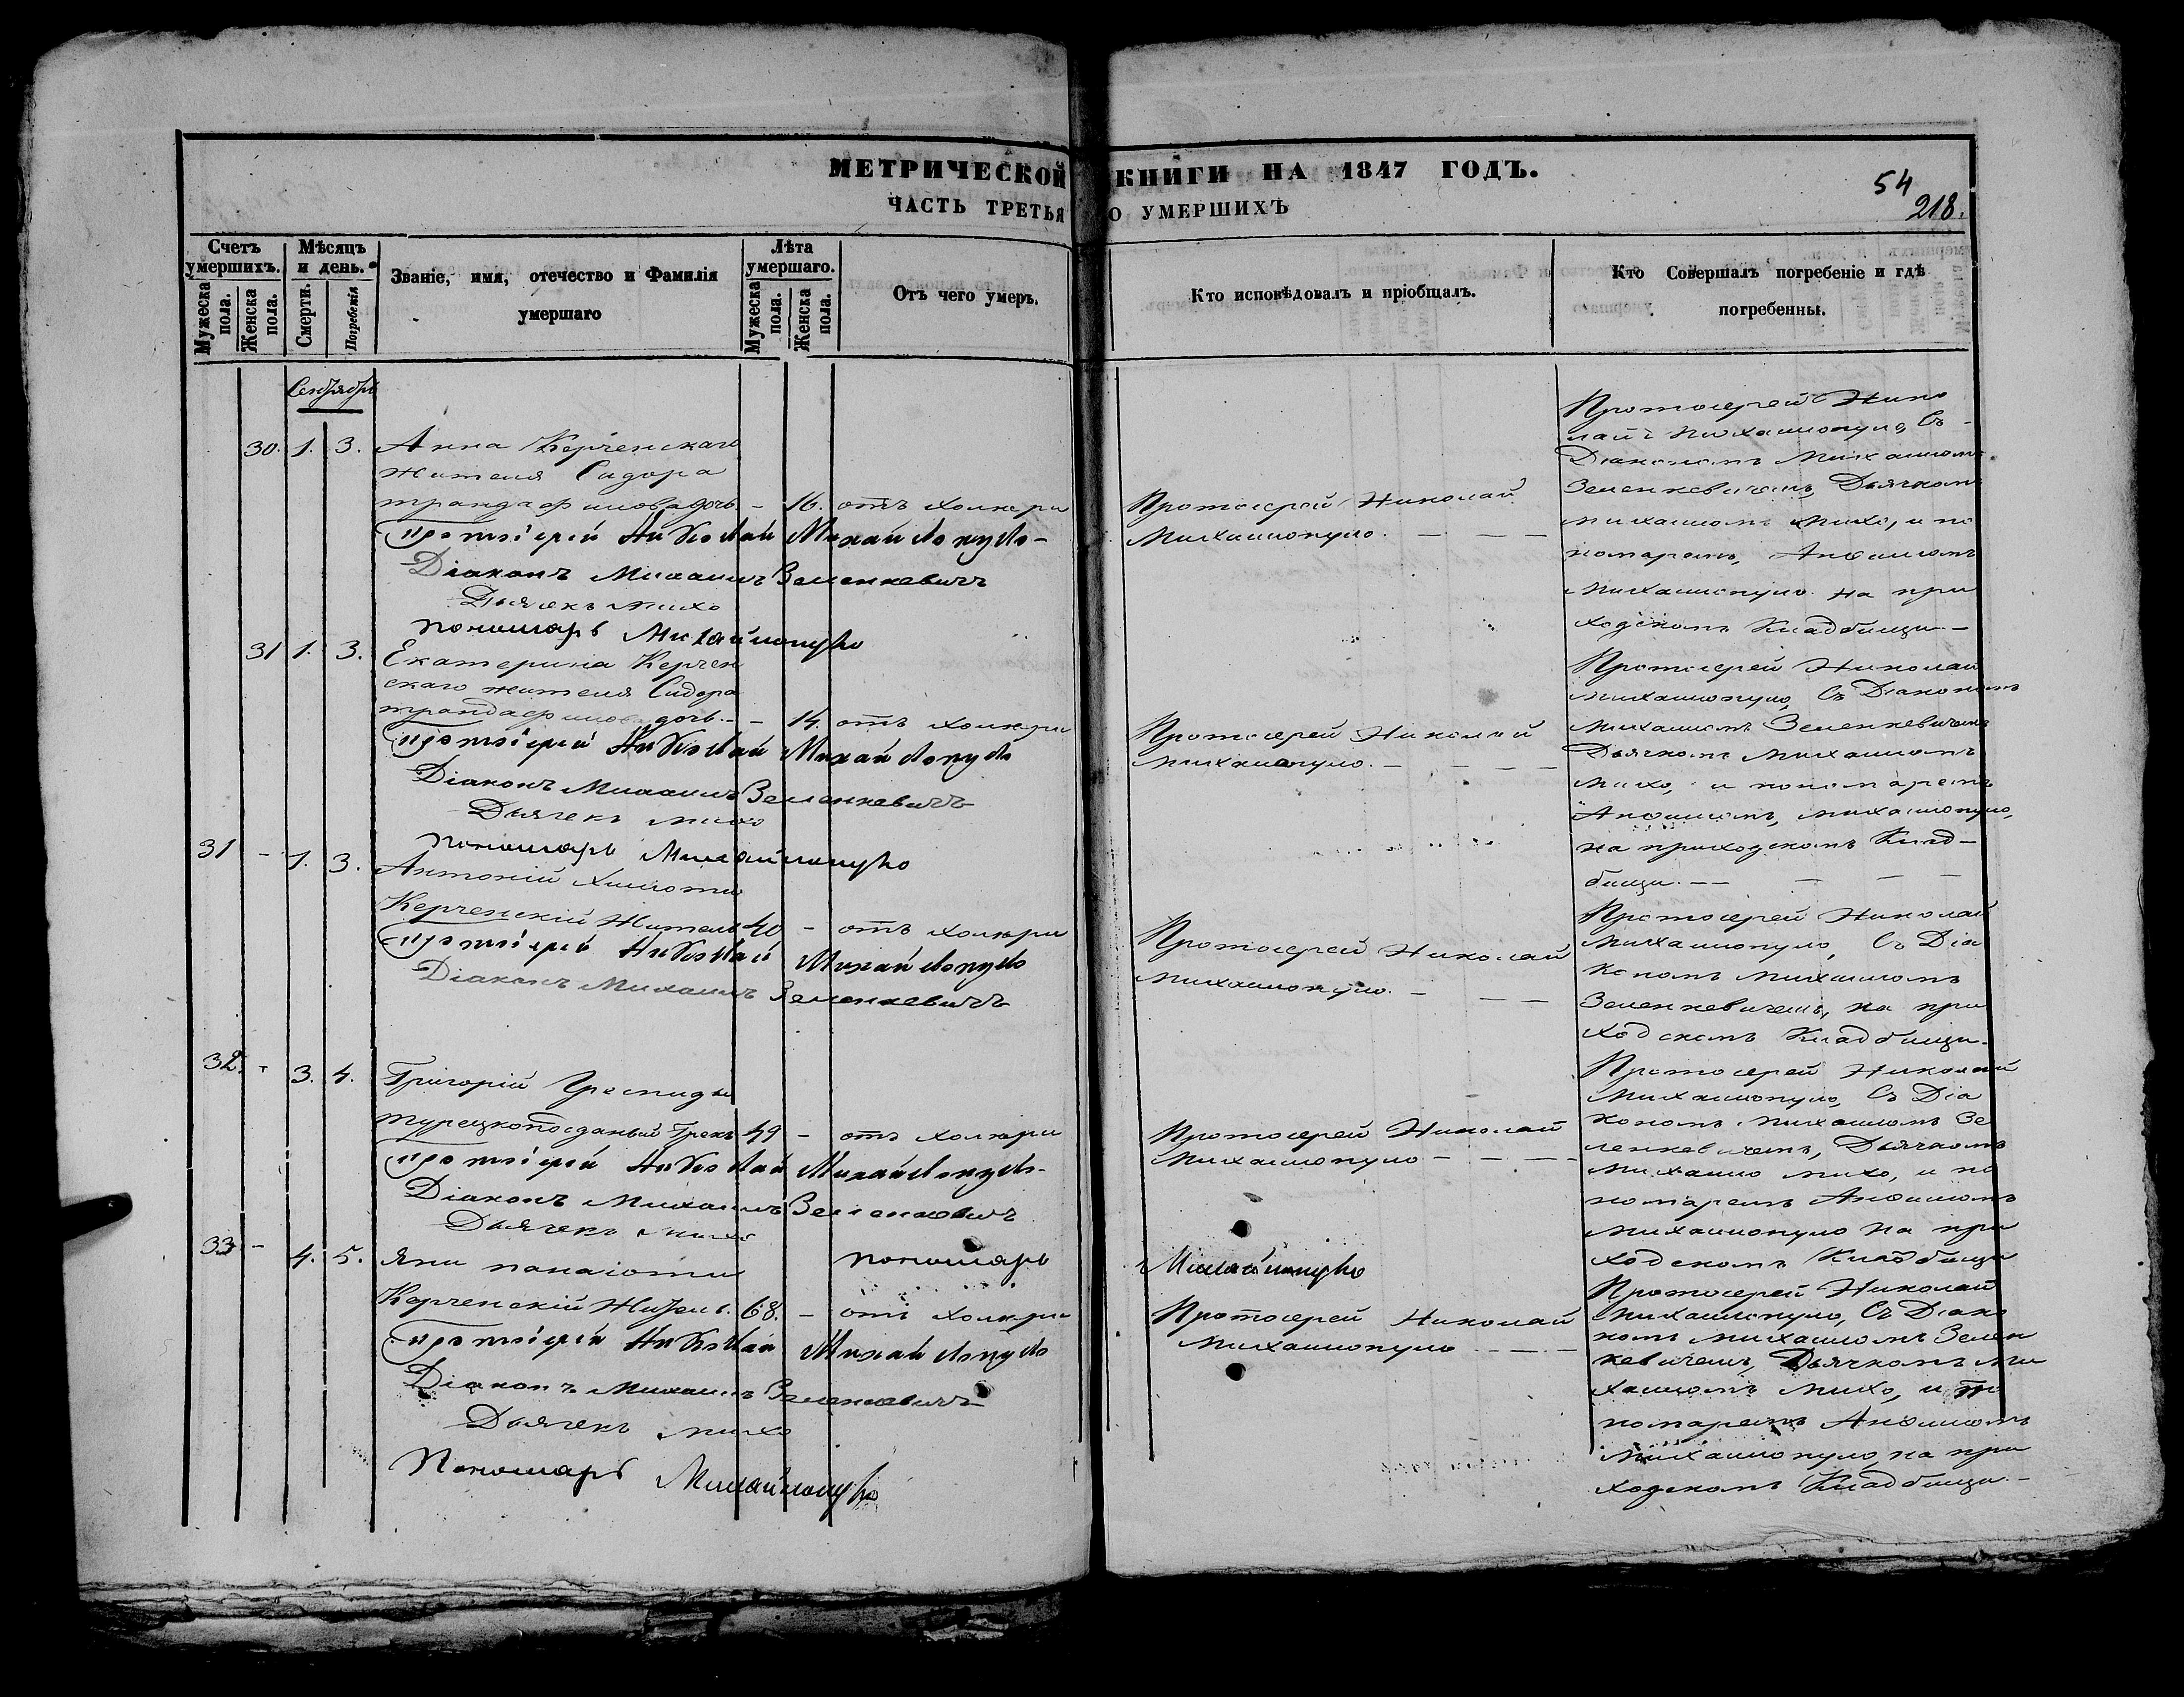 МЕТРИЧЕСКОЙ КНИГИ НА 1847 ГОДЪ.
ЧАСТЬ ТРЕТЬЯ О УМЕРШИХЪ
54
218.
Счетъ умершихъ.
Мужеска пола.
Женска пола.
Мѣсяцъ и день.
Смерти.
Погребенія
Званіе, имя, отечество и Фамилія
умершаго
Лѣта умершаго.
Мужеска пола.
Женска пола.
Отъ чего умеръ.
Кто исповѣдовалъ и пріобщалъ.
Кто Совершалъ погребеніе и гдѣ
погребенны.
Сентябрь
30. 1. 3. Анна Керченскаго
жителя Сидора
трандафилова дочь. – 16. отъ холери
Протоіерей Николай Михайлопуло –
Діаконъ Михаилъ Зеленкевичъ
Дьячекъ михо
пономарь Михайлопуло
Протоіерей Николай
Михаилопуло. – – –
Протоіерей Нико
лай Михаилопуло, Съ
Діакономъ Михаиломъ
Зеленкевичемъ, Дьячкомъ
михаиломъ михо, и по
номаремъ, Анфимомъ
Михаилопуло. на при
ходскомъ Кладбищи. –
31 1. 3. Екатерина Керчен
скаго жителя Сидора
трандафилова дочь. – – 14. отъ холери
Протоіерей Николай Михайлопуло
Діаконъ Михаилъ Зеленкевичъ
Дьячекъ михо
пономарь Михайлопуло
Протоіерей Николай
Михаилопуло. – – – –
Протоіерей Николай
Михаилопуло, Съ Діакономъ
Михаиломъ Зеленкевичемъ
Дьячкомъ Михаиломъ
Михо, и пономаремъ
Анфимомъ, михаилопуло,
на приходскомъ Клад –
бищи. – – – – –
31 – 1. 3. Антоній
Керченскій Житель 40 – отъ холери
Протоіерей Николай Михайлопуло
Діаконъ Михаилъ Зеленкевичъ
Протоіерей Николай
Михаилопуло. – – –
Протоіерей Николай
Михаилопуло, Съ Діа
кономъ Михаиломъ
Зеленкевичемъ, на при
ходскомъ Кладбищи.
32. – 3. 4. Григорій
турецкоподаный Грекъ 49 – отъ холери
Протоіерей Николай Михайлопуло –
Діаконъ Михаилъ Зеленкевичъ
Дьячекъ михо
пономарь Михайлопуло
Протоіерей Николай
Михаилопуло – – – –
Протоіерей Николай
Михаилопуло, Съ Діа
кономъ Михаиломъ Зе
ленкевичемъ, Дьячкомъ
Михаило михо, и по
номаремъ Анфимомъ
Михаилопуло на при
ходскомъ Кладбищи
33 – 4. 5. Яни панаіоти
Керченскій Житель. 68. – отъ холери
Протоіерей Николай Михайлопуло
Діаконъ Михаилъ Зеленкевичъ
Дьячекъ михо
Пономарь Михайлопуло
Протоіерей Николай
Михаилопуло – – –
Протоіерей Николай
Михаилопуло, Съ Діако
номъ Михаиломъ Зелен
кевичемъ, Дьячкомъ Ми
хаиломъ Михо, и по
номаремъ Анфимомъ
Михаилопуло на при
ходскомъ Кладбищи. –